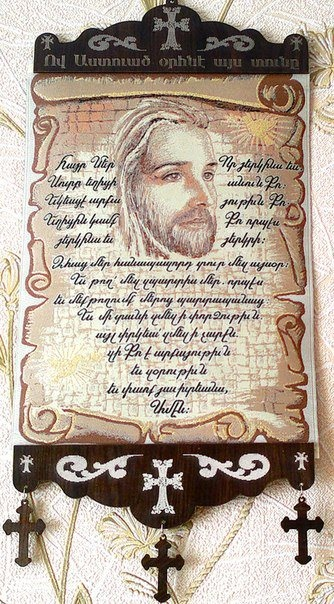 Ով Աստուած օրինէ այս տունը
Հայր Մեր Որ յերկինս ես
Սուրբ եղիցի անուն Քո:
Եկեսցէ արքա յութիւն Քո
Եղիցին կամք Քո որպէս
յերկինս եւ յերկրի:
Զհաց մեր հանապազորդ տուր մեզ այսօր:
Եւ թող՝ մեզ զպարտիս մեր. որպէս
եւ մեք թողումք մերոց պարտապանաց
Եւ մի տանիր զմեզ ի փորձութիւն.
այլ փրկեա՛ զմեզ ի չարէն.
զի Քո է արքայութիւն
եւ զօրութիւն
եւ փառք յաւիտեանս,
Ամէն: